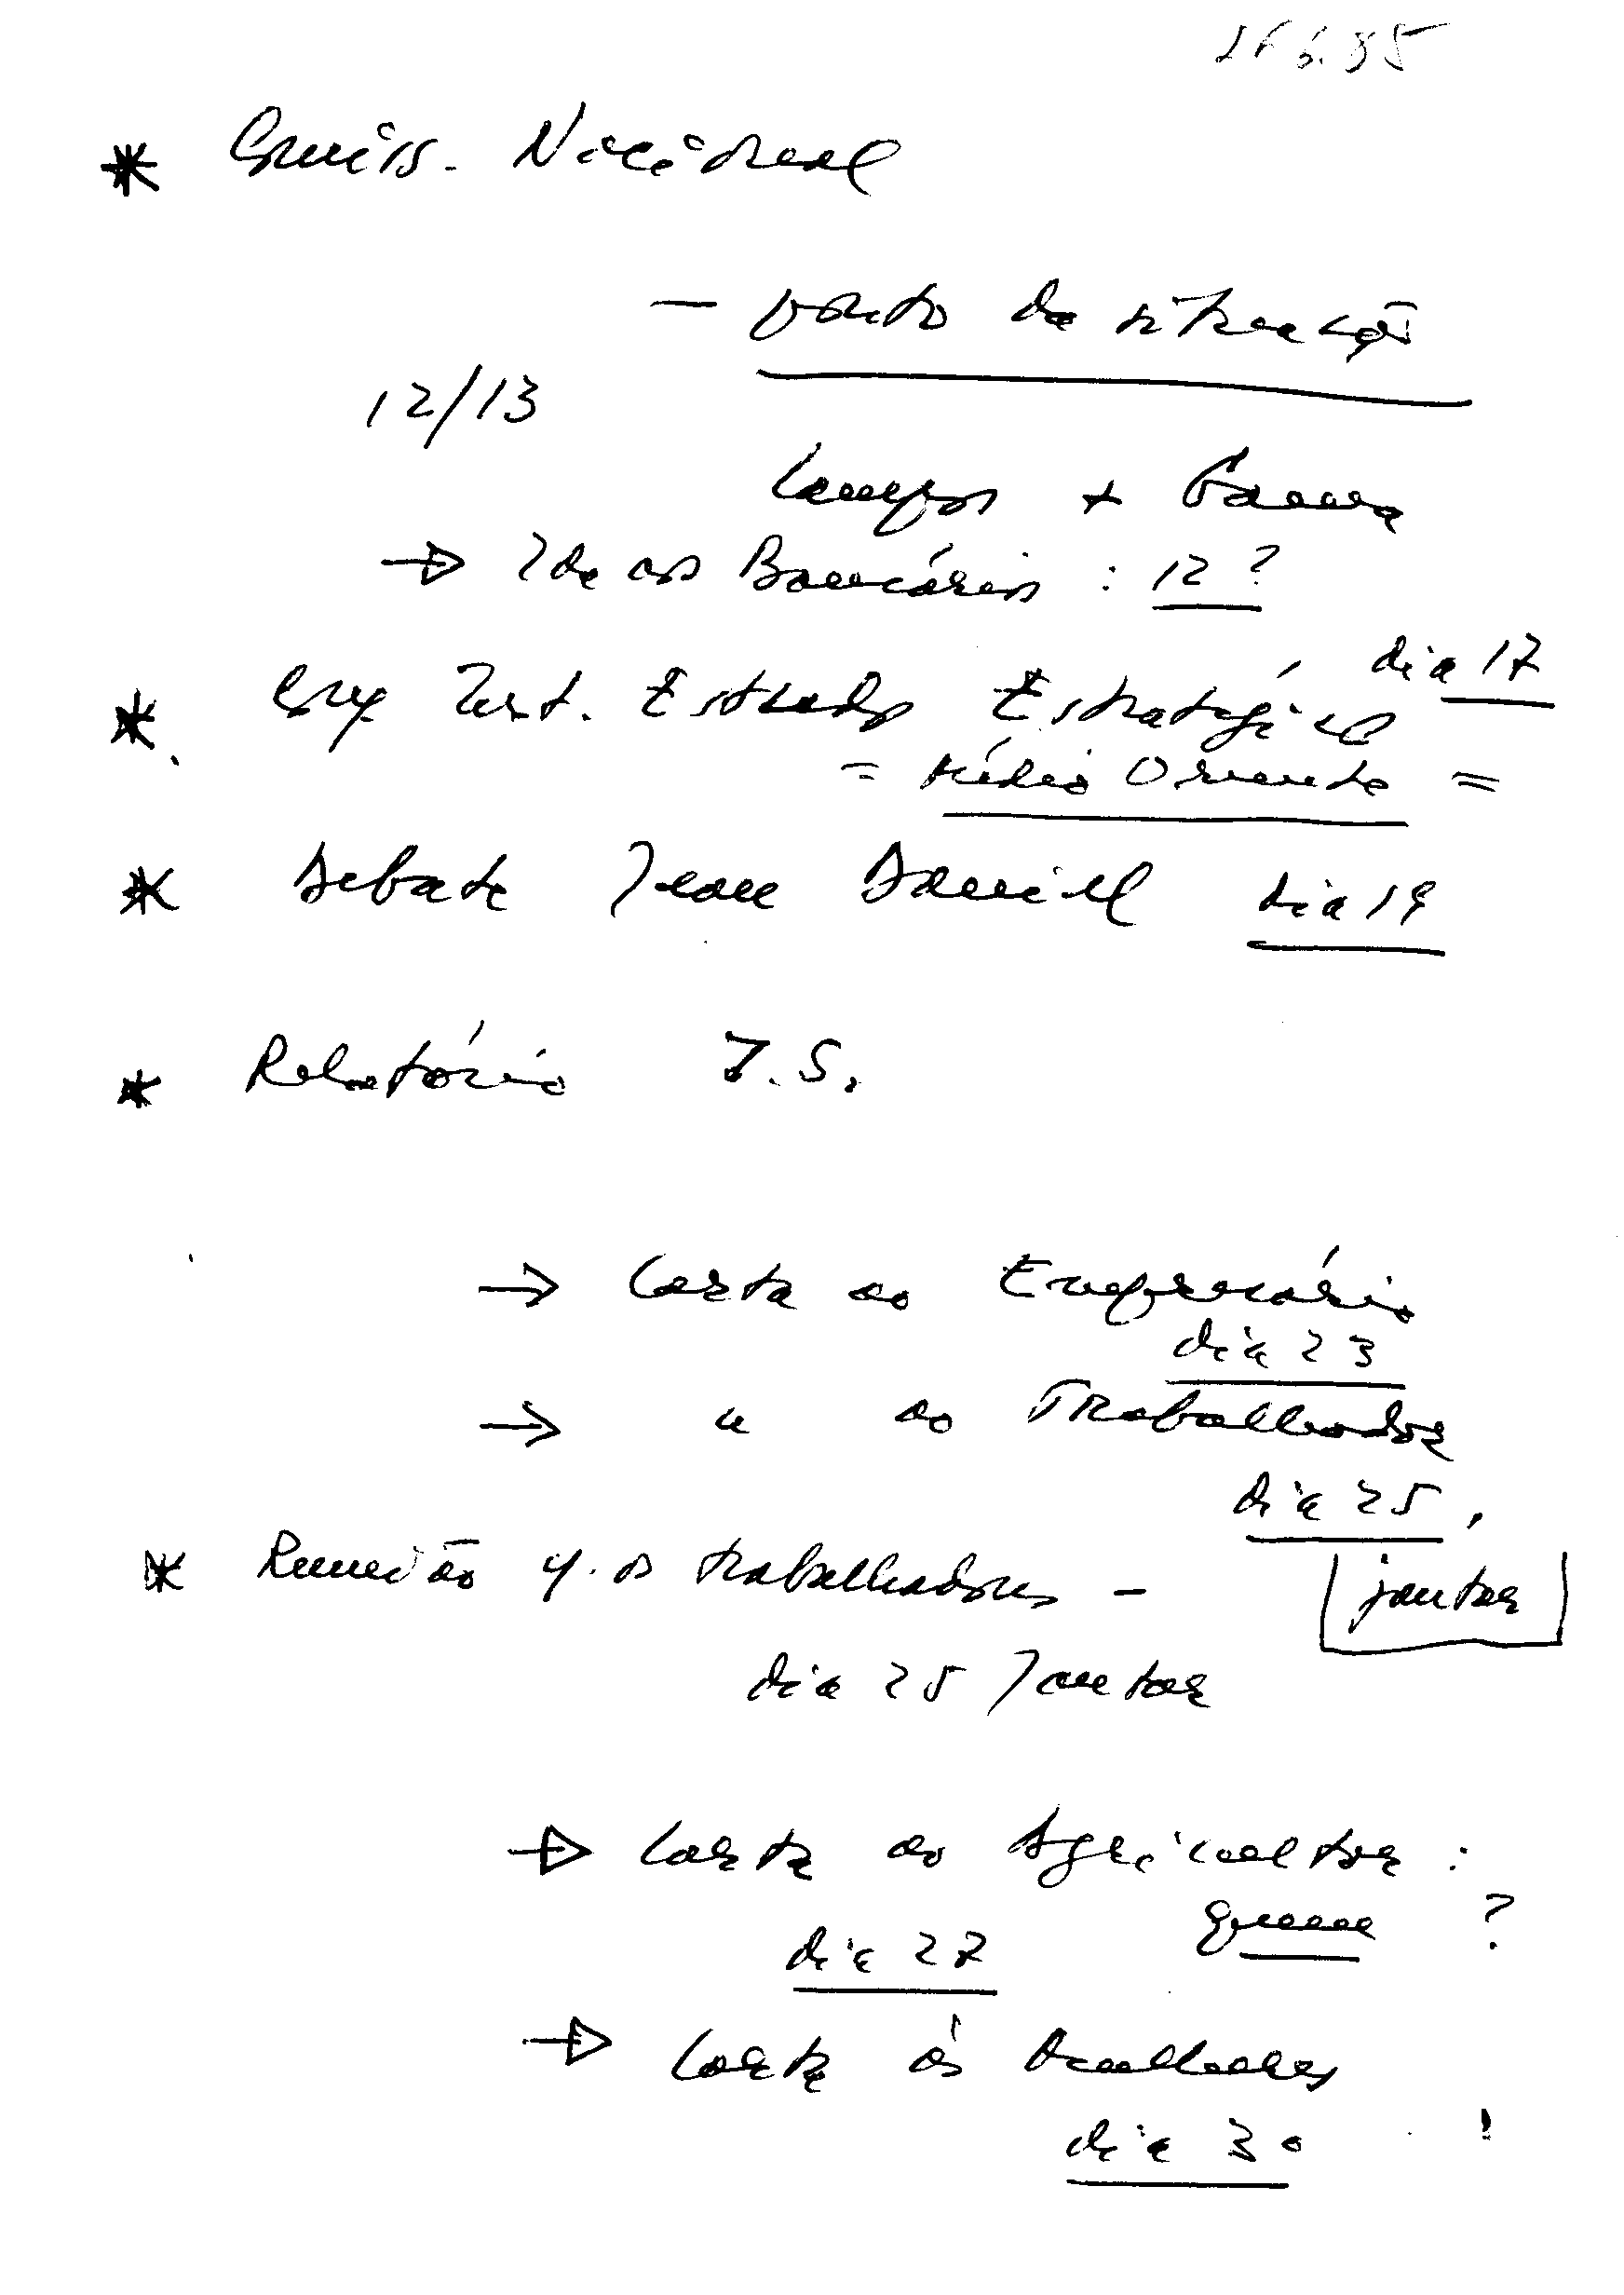 6.95
* Comiss. Nacional
— ponto da situação
12/13
Campos + Gama
→ Ida aos Bancários : 12 ?
dia 17
* Inst. Estudos Estratégicos
= Médio Oriente =
* Debate Jean Daniel dia 19
* Relatório I.S.
→ Carta ao Empresário
dia 23
→ " ao Trabalhador
dia 25
* Reunião os trabalhadores — jantar
dia 25 Jantar
→ Carta ao Agricultor :
dia 27 quem ?
→ Carta às Mulheres
dia 30 !